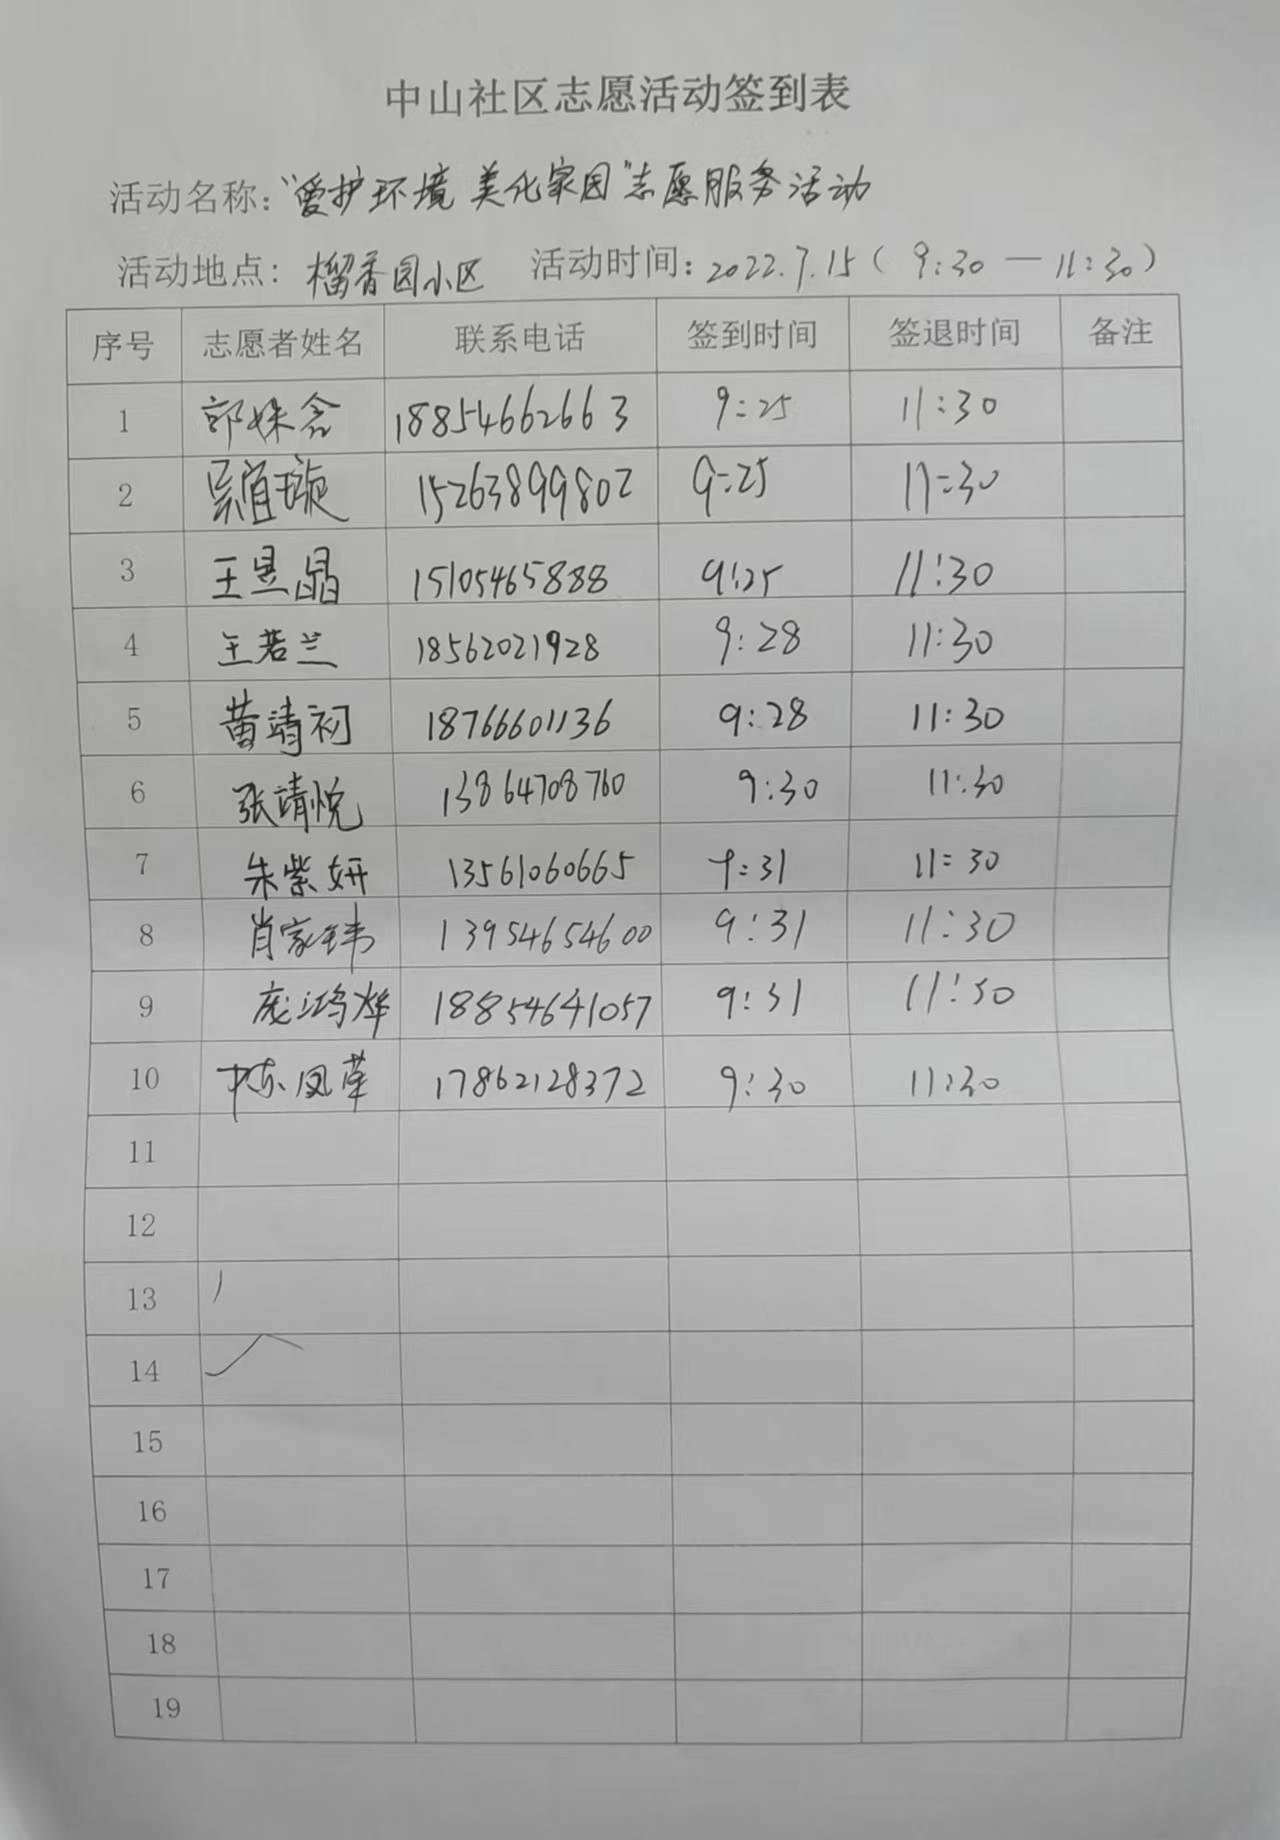 中山社区志愿活动签到表
活动名称：“爱护环境 美化家园”志愿服务活动
活动地点：榴香园小区 活动时间：2022.7.15（9:30—11:30）
序号 志愿者姓名 联系电话 签到时间 签退时间 备注
1 郭姝含 18854662663 9:25 11:30
2 15263899802 9:25 11:30
3 王昱晶 15105465888 9:25 11:30
4 王若兰 18562021928 9:28 11:30
5 黄靖初 18766601136 9:28 11:30
6 张靖悦 13864708760 9:30 11:30
7 朱紫妍 13561060665 9:31 11:30
8 肖家玮 13954654600 9:31 11:30
9 庞鸿烨 18854641057 9:31 11:30
10 陈凤苹 17862128372 9:30 11:30
11
12
13
14
15
16
17
18
19